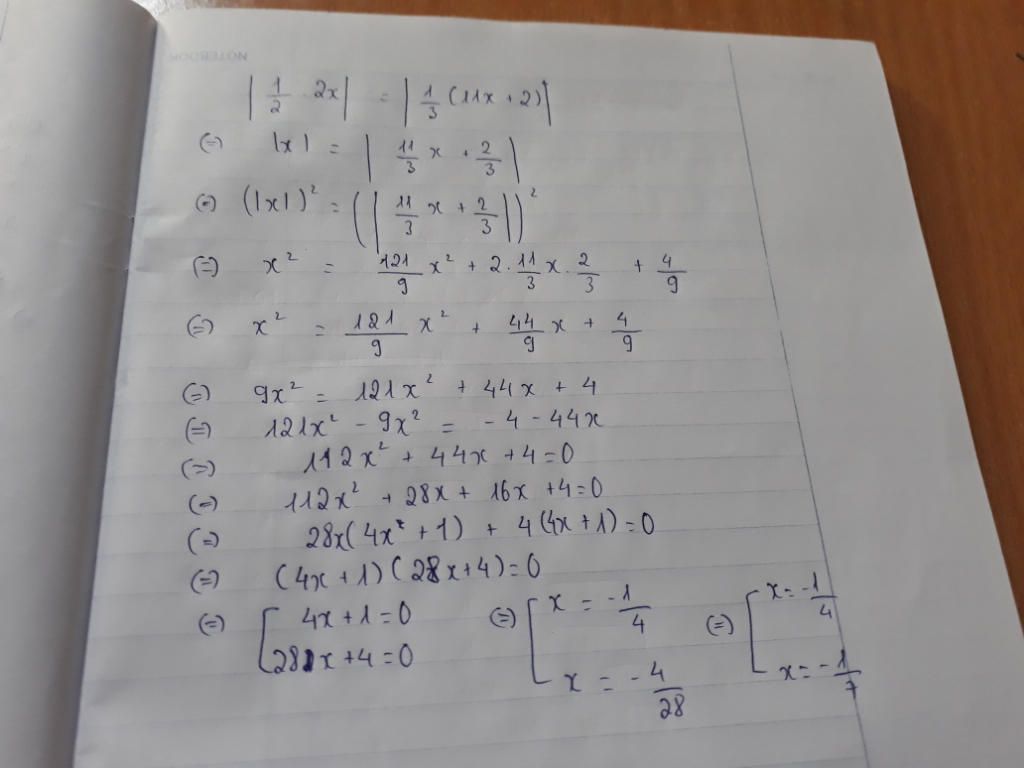 NOTEBOOK
|1/2 · 2x| = |1/3 (11x + 2)|
(=) |x| = |11/3 x + 2/3|
(=) (|x|)² = (|11/3 x + 2/3|)²
(=) x² = 121/9 x² + 2 · 11/3 x · 2/3 + 4/9
(=) x² = 121/9 x² + 44/9 x + 4/9
(=) 9x² = 121x² + 44x + 4
(=) 121x² - 9x² = - 4 - 44x
(=) 112x² + 44x + 4 = 0
(=) 112x² + 28x + 16x + 4 = 0
(=) 28x(4x² + 1) + 4(4x + 1) = 0
(=) (4x + 1)(28x + 4) = 0
(=) [ 4x + 1 = 0 (=) [ x = -1/4 (=) [ x = -1/4
28x + 4 = 0 x = -4/28 x = -1/7